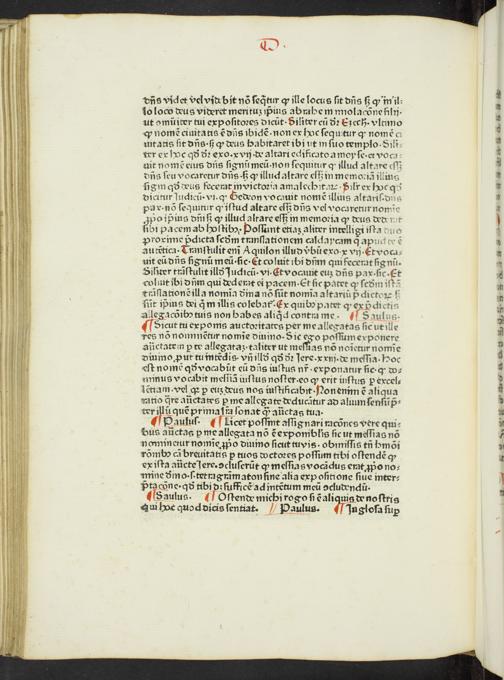 D.
dn̄s videt vel videbit nō seq̄tur ꝙ ille locus sit dn̄s ꝙ in il-
lo loco deus videret meritum ip̄ius abrahe in
ut omniter tui expositores dicūt. Siliter cū dr̄ Ezech. ultimo
ꝙ nomē civitatis ē dn̄s ibidē. non ex hoc sequitur ꝙ nomē ci
vitatis sit dn̄s. ꝙ deus habitaret ibi ut in suo templo. Sili-
ter ex hoc qd̄ dr̄ exo. xvij. de altari edificato a moyse. et voca-
vit nomē eius dn̄s signū meū. non sequitur ꝙ illud altare
dn̄s seu vocaretur dn̄s. ꝙ illud altare in memoriā illius
fecerat in victoria amalech. Silr̄ ex hoc qd̄
dicitur Judicū. vi. ꝙ Gedeon vocavit nomē illius altaris. dn̄s
pax. nō sequitur ꝙ istud altare dn̄s vel vocaretur nomīe
illud altare in memoria ꝙ deus
sibi pacem ab hostibꝫ. Possunt etiaꝫ aliter intelligi ista duo
proxime p̄dicta sedm translationem caldaycam ꝙ apud te ē
autētica. Transtulit eni Aquilon illud vˀbū exo. xvij. Et voca-
vit eū dn̄s signū meū. sic. Et coluit ibi dn̄m qui fecerat signū.
Siliter trāstulit illd̄ Judicū. vi. Et vocavit euꝫ dn̄s pax. sic. Et
coluit ibi dn̄m qui dederat ei pacem. Et sic patet ꝙ sedm istā
trāslationē illa nomīa dīna nō sūt nomīa altariū
sūt ip̄ius dei in illis colebat. Ex quibꝫ patet ꝙ ex p̄dictis
allegacōibꝫ tuis non habes aliqd̄ contra me. ¶ Saulus.
¶ Sicut tu exponis auctoritates per me allegatas sic ut ille
res nō nominētur nomīe divino. Sic ego possum exponere
auctate per te allegataꝫ. taliter ut messias nō noīetur nomīe
divino, put tu intēdis. vn̄ illd̄ qd̄ dr̄ Jere. xxiij. de messia. Hoc
est nomē qd̄ vocabūt eū dn̄s iustus nr̄. exponatur sic. ꝙ do-
minus vocabit messiā iustus noster. eo ꝙ erit iustus p̄ excel-
lētiam. vel ꝙ p̄ euꝫ deus nos iustificabit. Non enim ē aliqua
ratio q̄re auctates p̄ me allegate deducātur ad alium sensū
illū quē prima sonat auctas tua.
¶ Paulus. ¶ Licet possint assignari racōnes vere qui-
bus auctas p̄ me allegata nō ē exponibilis sic ut messias nō
nominetur nomīe, ꝓpo divino sicut tu vis. obmissis tn̄
ca brevitatis p̄ tuos doctores possum tibi ostendē ꝙ
ex ista aucte Jere. ꝯcluserūt ꝙ messias vocādus erat, ꝓpo no-
mine dīno. s. tetragramaton sine alia expositione sive inter-
p̄tacōne. qd̄ tibi dꝫ sufficē ad intētum meū ꝯcludendū.
¶ Saulus. ¶ Ostende michi rogo si ē aliquis de nostris
qui hoc quod dicis sentiat. ¶ Paulus. ¶ In glosa sup